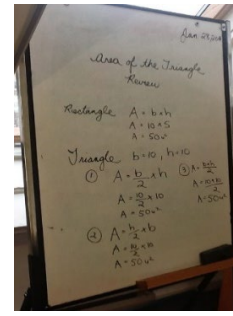 Area of the Triangle
Review
Rectangle A = b×h
A = 10 × 5
A = 50u²
Triangle b=10, h=10
① A = b/2 × h
A = 10/2 × 10
A = 50u²
③ A = b×h/2
A = 10×10/2
A = 50u²
② A = h/2 × b
A = 10/2 × 10
A = 50u²